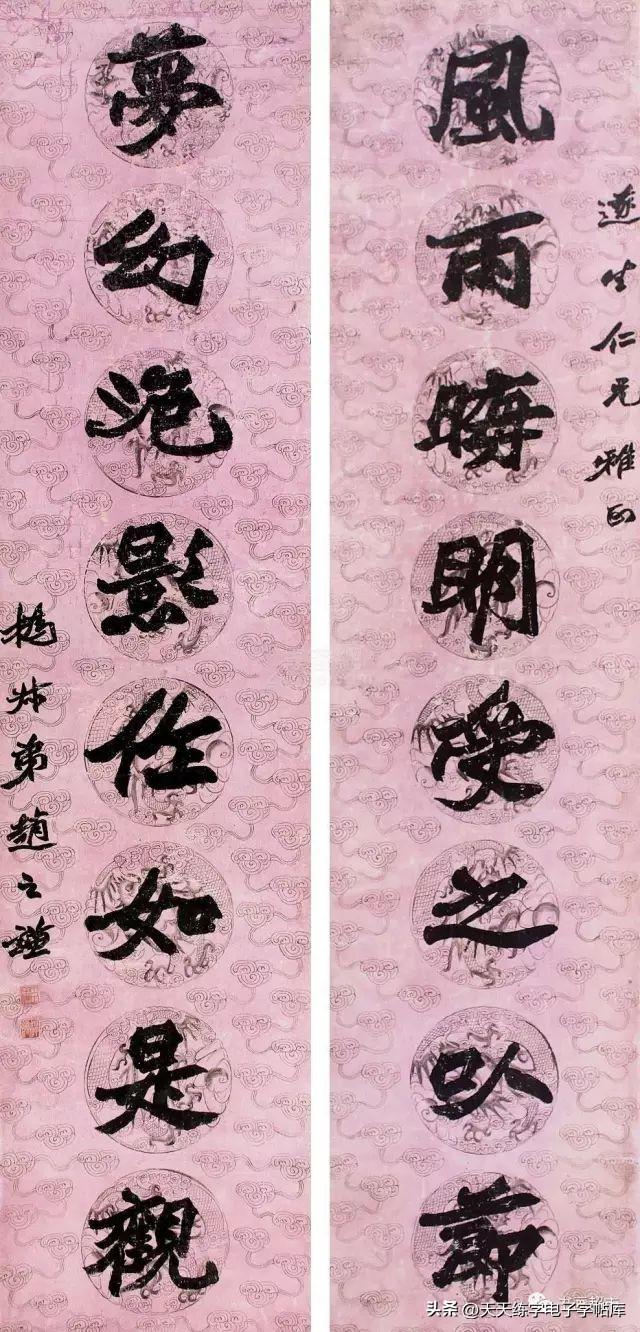 遂生仁兄雅正
風雨晦明受之以節
夢幻泡影作如是觀
撝叔弟趙之謙
头条 @天天练字电子字帖库